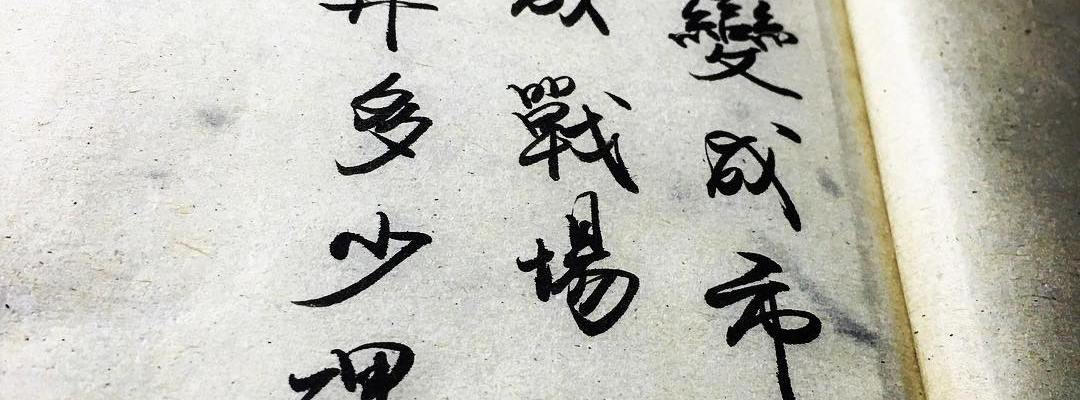 變成市
成戰場
弃多少理